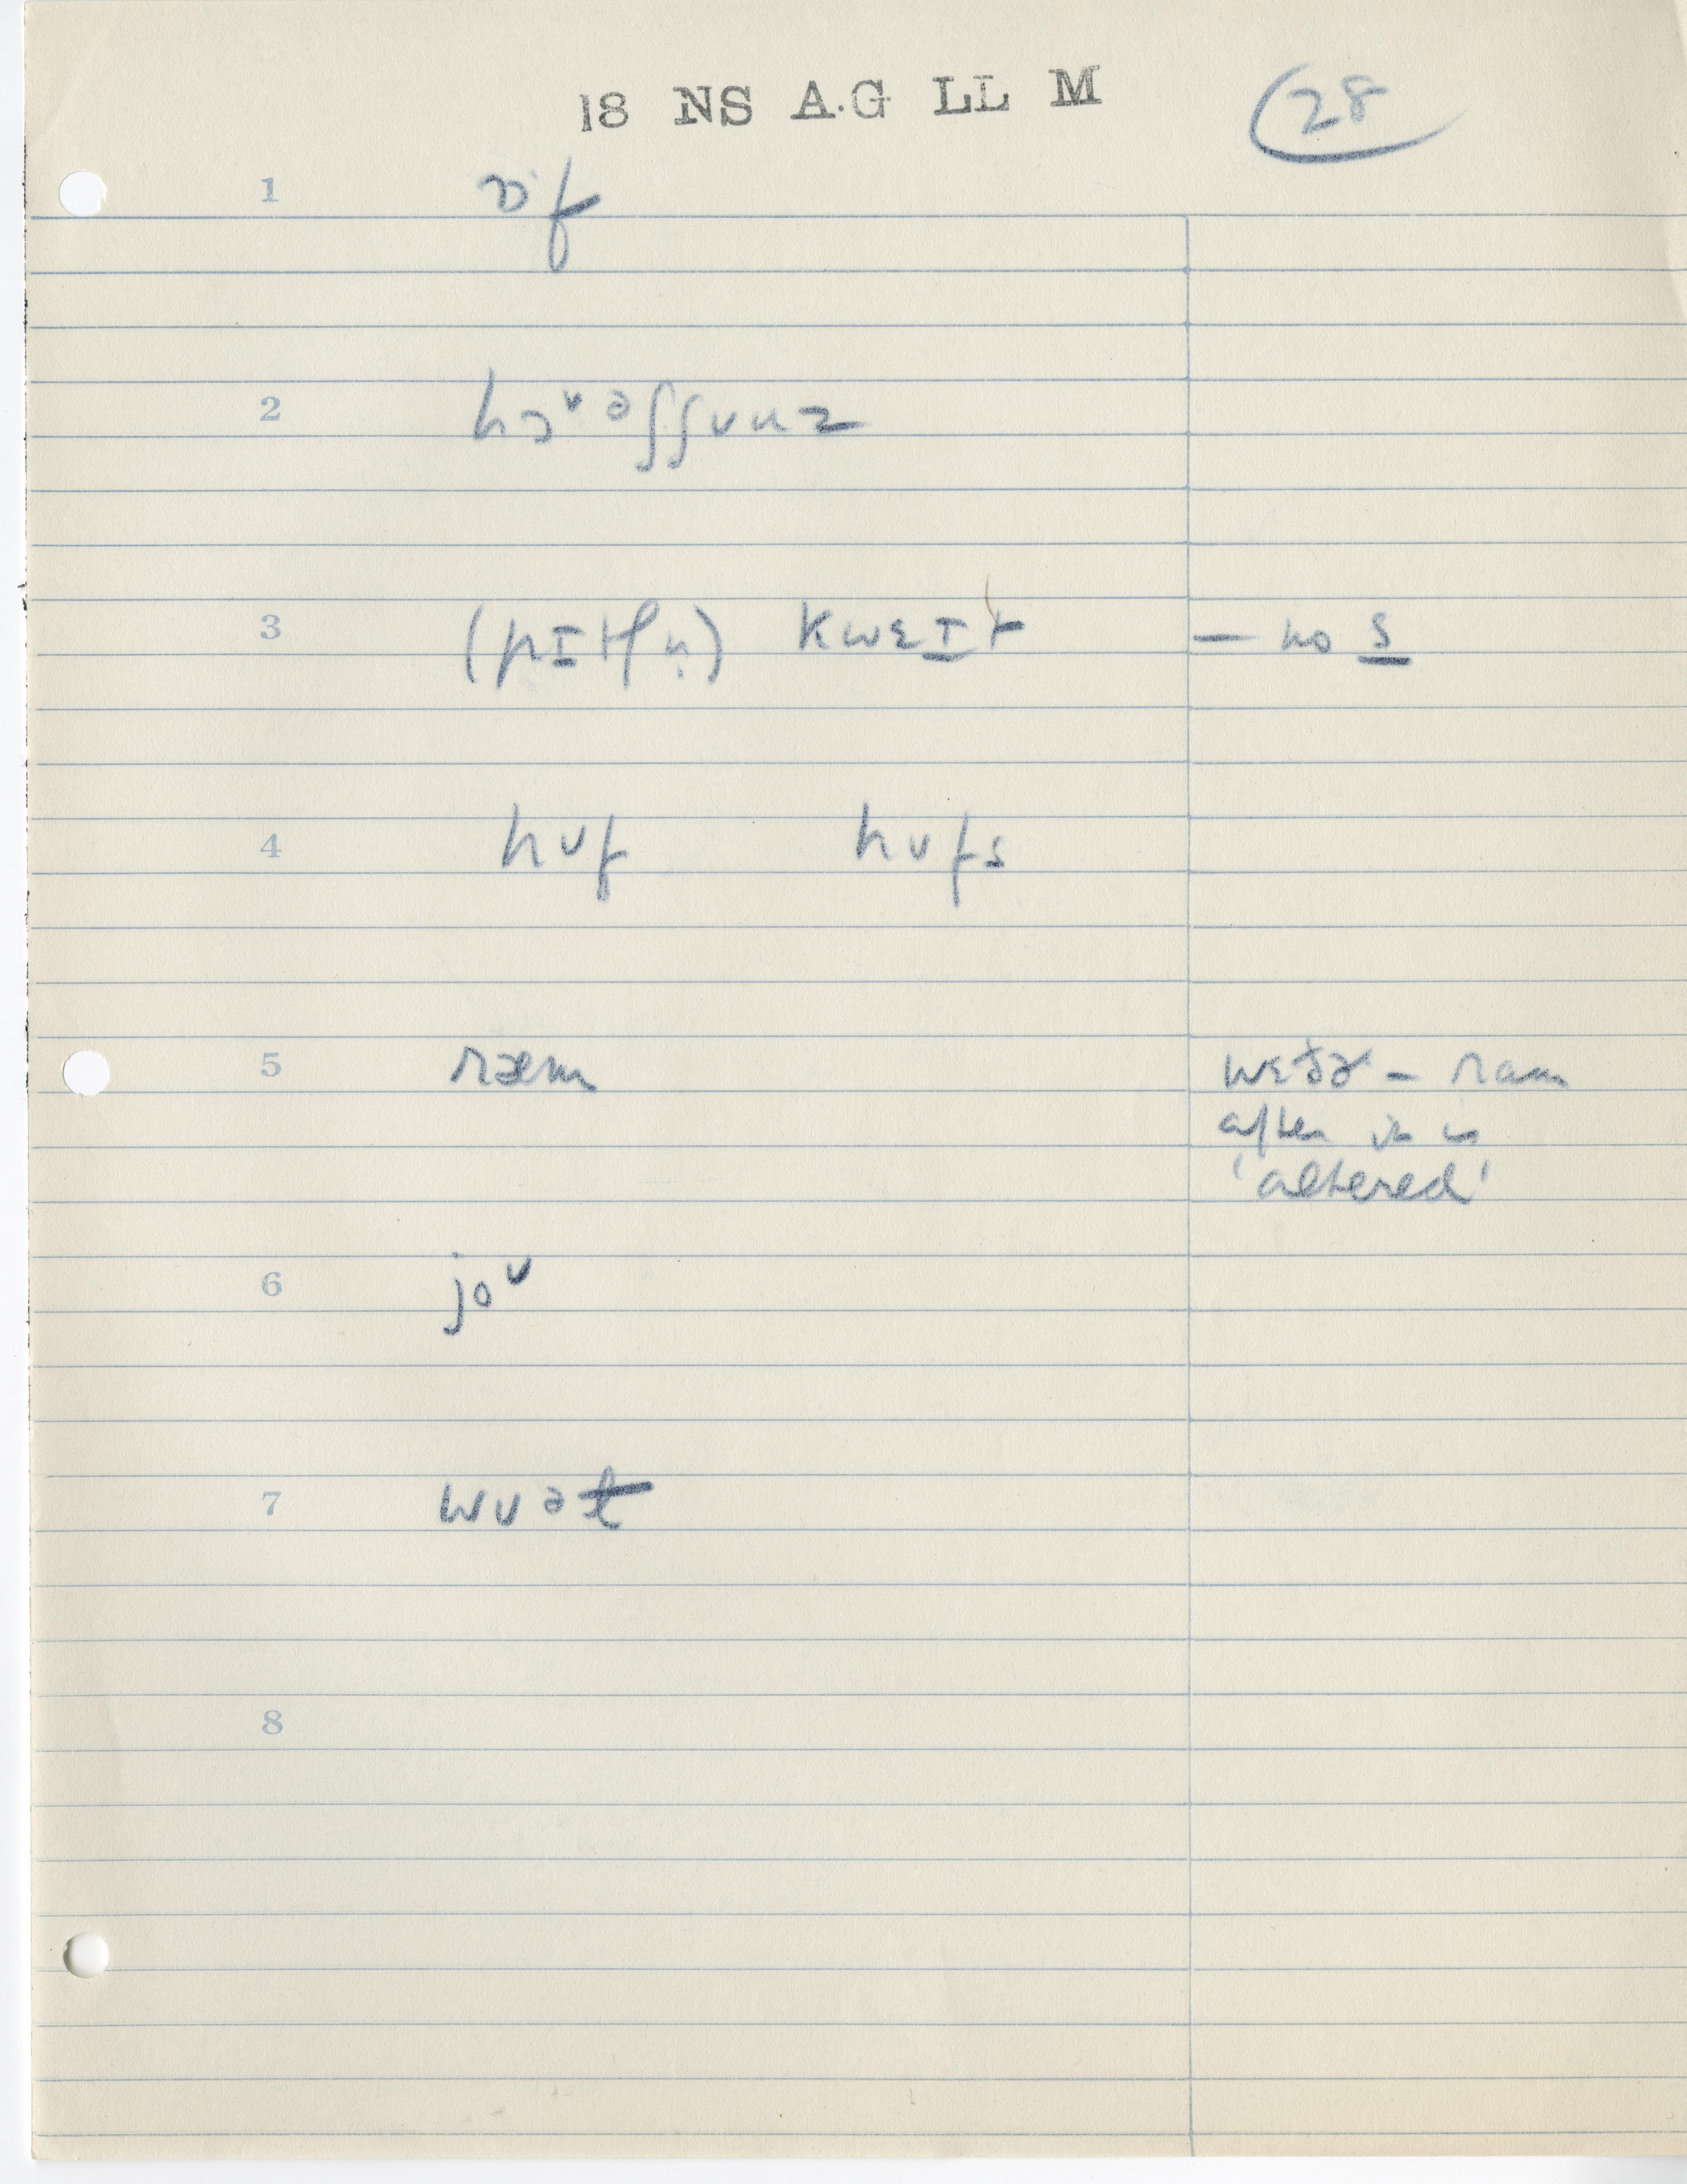 18 NS A.G LL M (28
1 ɒf
2 hɔᶷəʃʃʊnz
3 (pɪtʃn̩) kwɛɪt — no s
4 hʊf hʊfs
5 ræm wɛðɚ – ram
after it is
'altered'
6 joᶷ
7 wʊəɫ
8